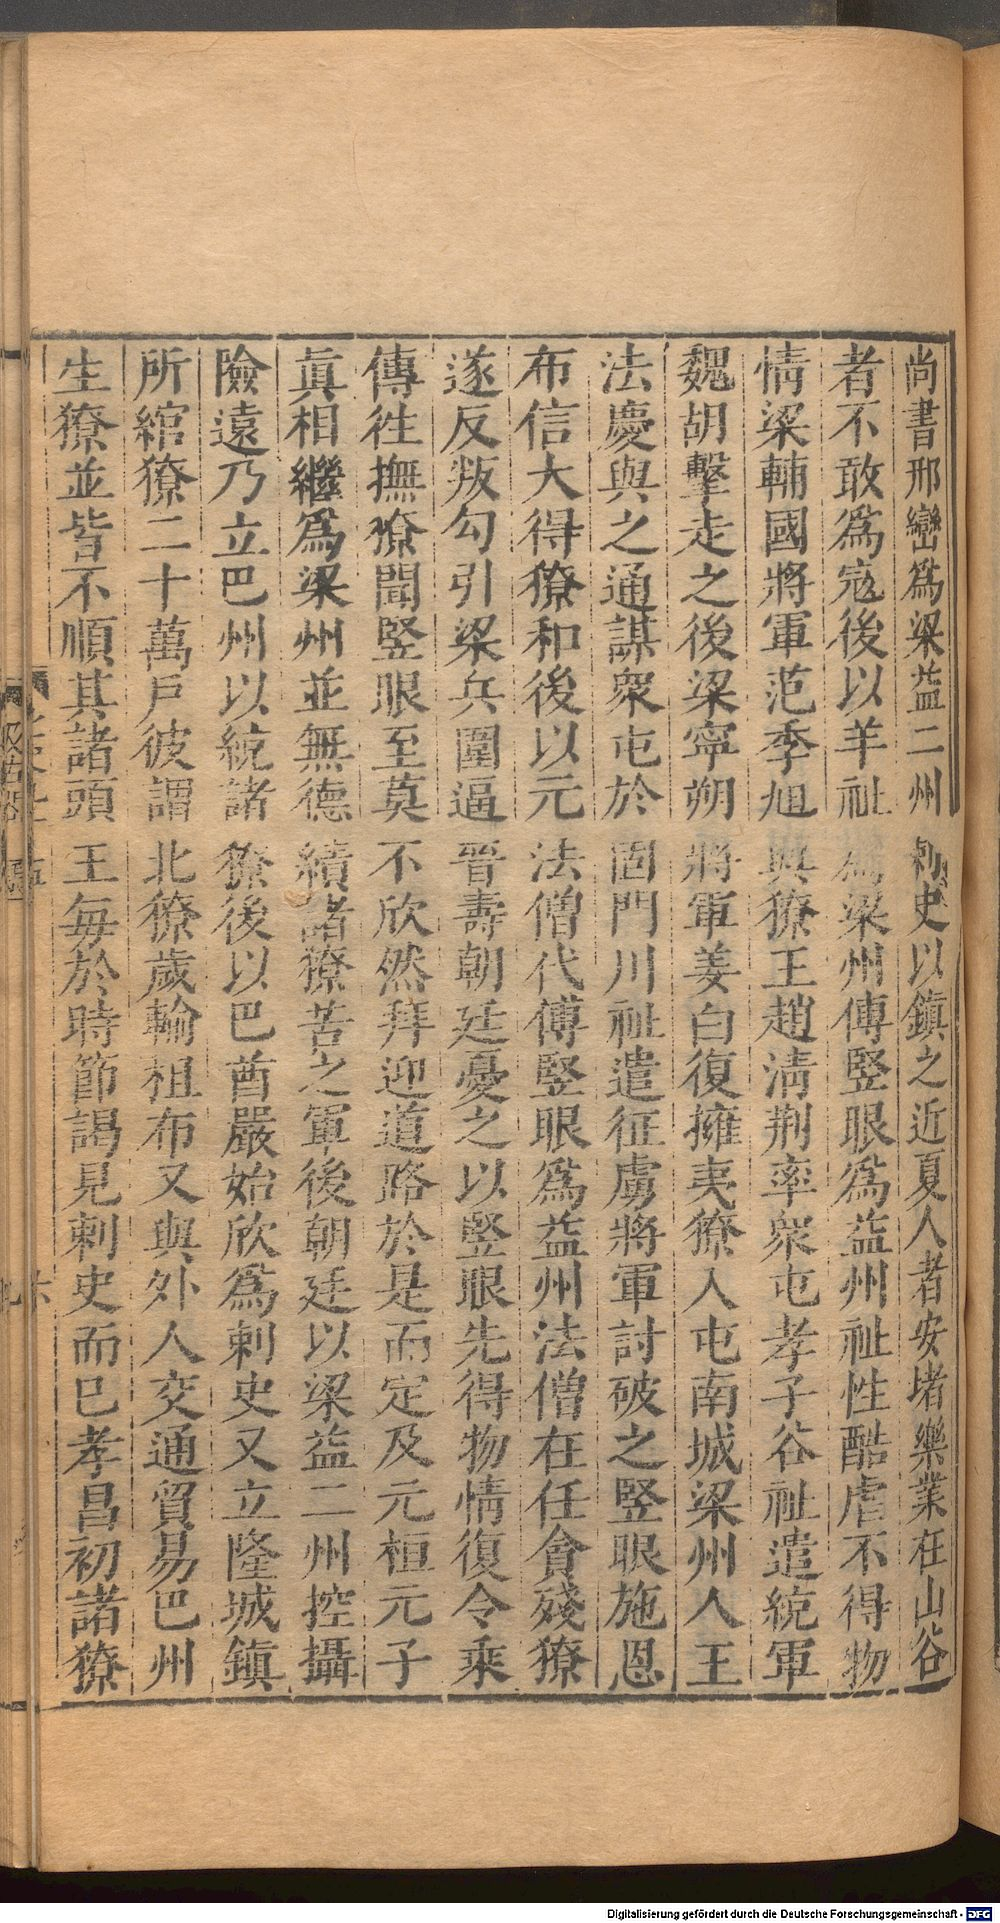 尚書邢巒爲梁益二州刺史以鎮之近夏人者安堵樂業在山谷
者不敢爲宼後以羊祉爲梁州傅竪眼爲益州祉性酷虐不得物
情梁輔國將軍范季旭與獠王趙淸荆率衆屯孝子谷祉遣統軍
魏胡擊走之後梁寧朔將軍姜白復擁夷獠入屯南城梁州人王
法慶與之通謀衆屯於固門川祉遣征虜將軍討破之竪眼施恩
布信大得獠和後以元法僧代傅竪眼爲益州法僧在任貪殘獠
遂反叛勾引梁兵圍逼晉壽朝廷憂之以竪眼先得物情復令乘
傳徃撫獠聞竪眼至莫不欣然拜迎道路於是而定及元桓元子
眞相繼爲梁州並無德績諸獠苦之軍後朝廷以梁益二州控攝
險遠乃立巴州以統諸獠後以巴酋嚴始欣爲刺史又立隆城鎮
所綰獠二十萬戶彼謂北獠歲輸租布又與外人交通貿易巴州
生獠並皆不順其諸頭王每於時節謁見刺史而巳孝昌初諸獠
Digitalisierung gefördert durch die Deutsche Forschungsgemeinschaft - DFG